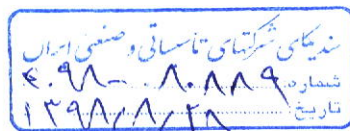 سندیکای شرکتهای تأسیساتی و صنعتی ایران
شماره: ۴۰۹۸-۸۰۸۸۹
تاریخ: ۱۳۹۸/۸/۲۸